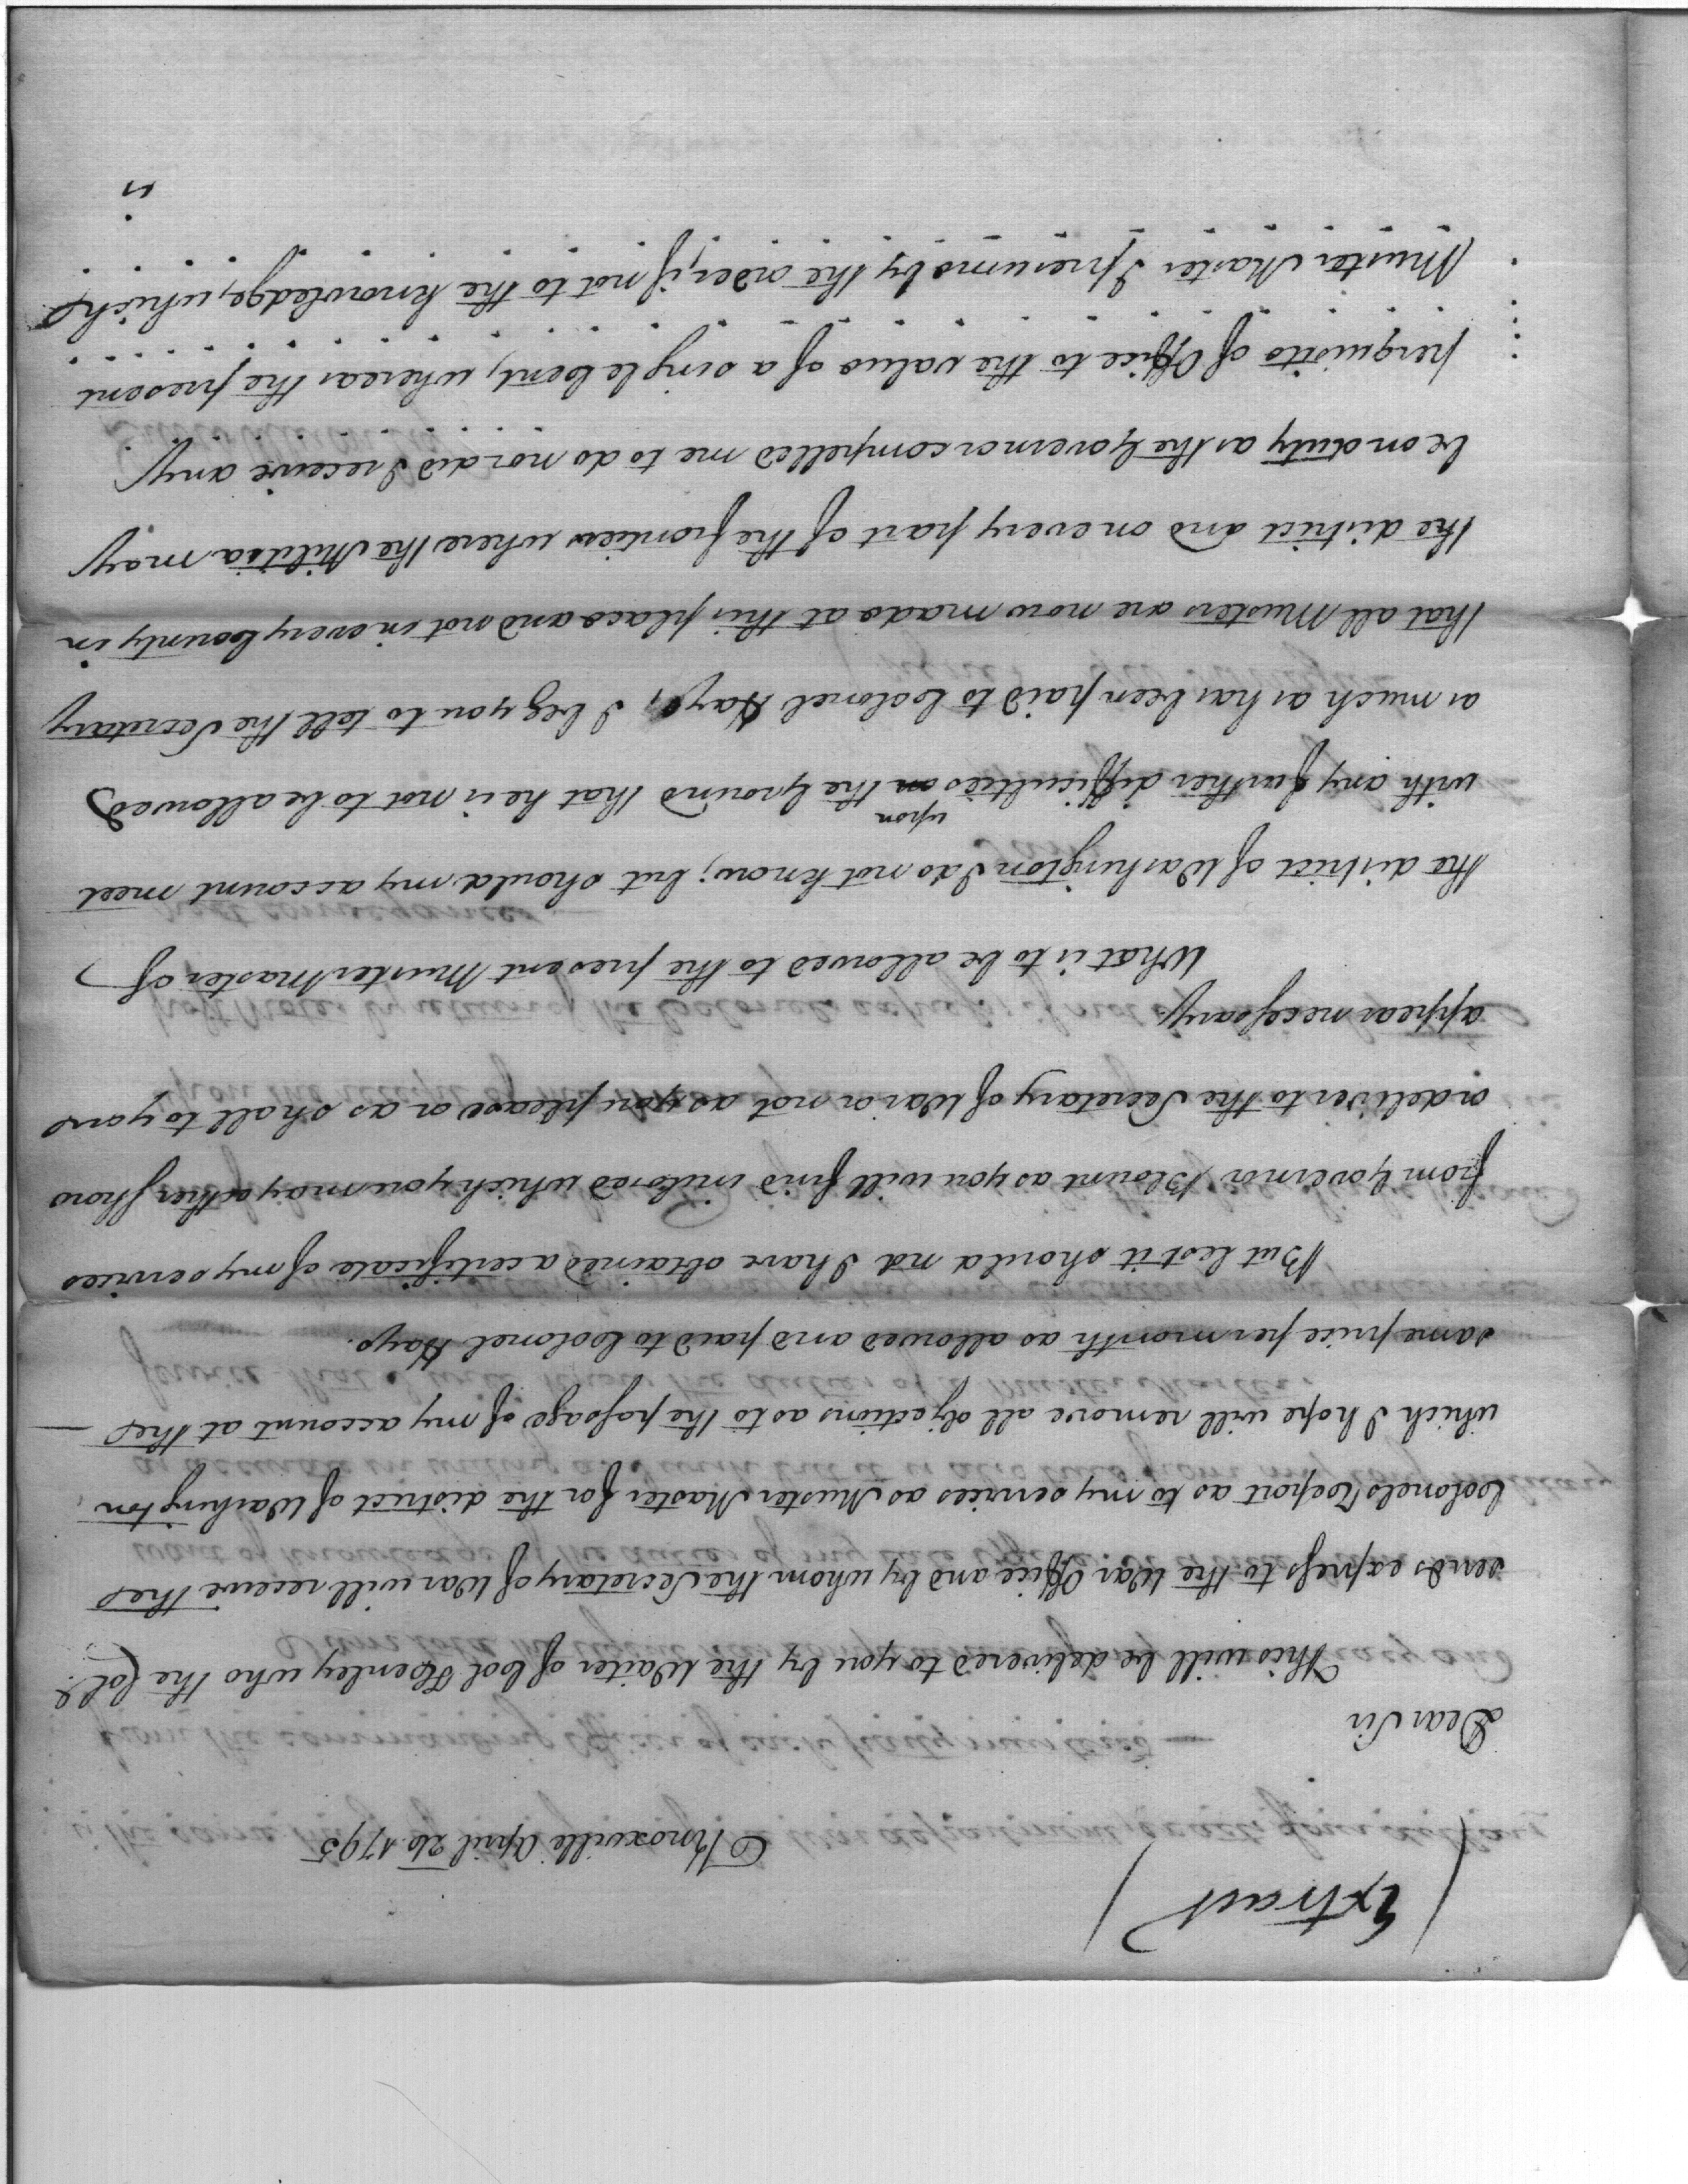 Extract
Knoxville April 26 1795
Dear Sir
This will be delivered to you by the Waiter of Col Henley who the Col.
sends express to the War Office and by whom the Secretary of War will receive the
Colonels Report as to my services as Muster Master for the district of Washington
which I hope will remove all objections as to the passage of my account at the
same price per month as allowed and paid to Colonel Hays.
But lest it should not I have obtained a certificate of my services
from Governor Blount as you will find inclosed which you may either show
or deliver to the Secretary of War or not as you please or as shall to you
appear necessary
What is to be allowed to the present Muster Master of
the district of Washington I do not know; but should my account meet
with any further difficulties on upon the Ground that he is not to be allowed
as much as has been paid to Colonel Hays, I beg you to tell the Secretary
that all Musters are now made at this place and not in every County in
the district and on every part of the frontiers where the Militia may
be on duty as the Governor compelled me to do nor did I receive any
perquisite of Office to the value of a single Cent, whereas the present
Muster Master I presume by the order, if not to the knowledge, which
is